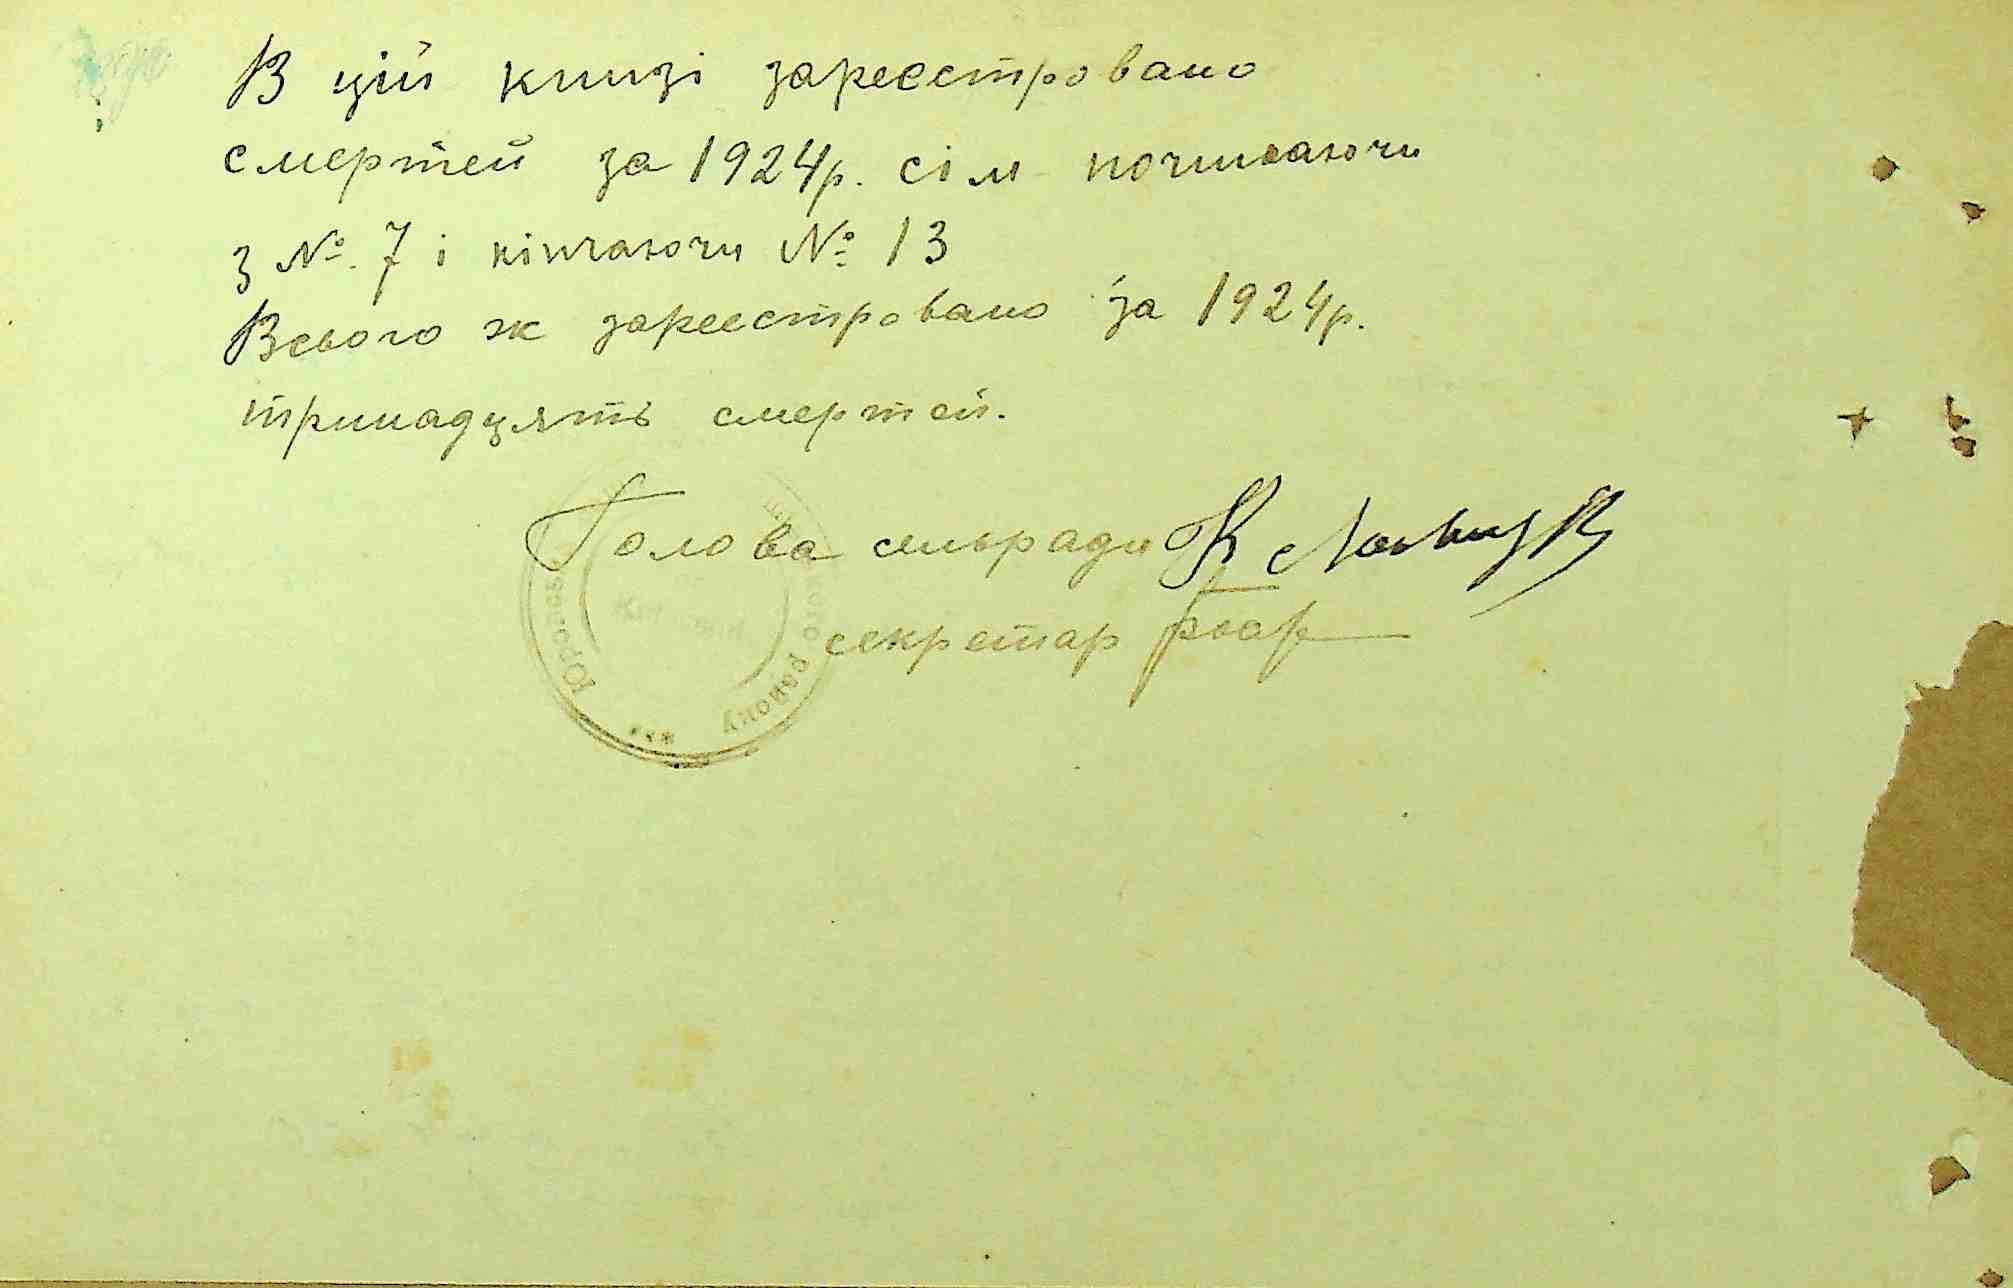 В цій книзі зареєстровано
смертей за 1924р. сім починаючи
з №. 7 і кінчаючи № 13
Всього ж зареєстровано за 1924р.
тринадцять смертей.
Голова сільради К
секретар
району